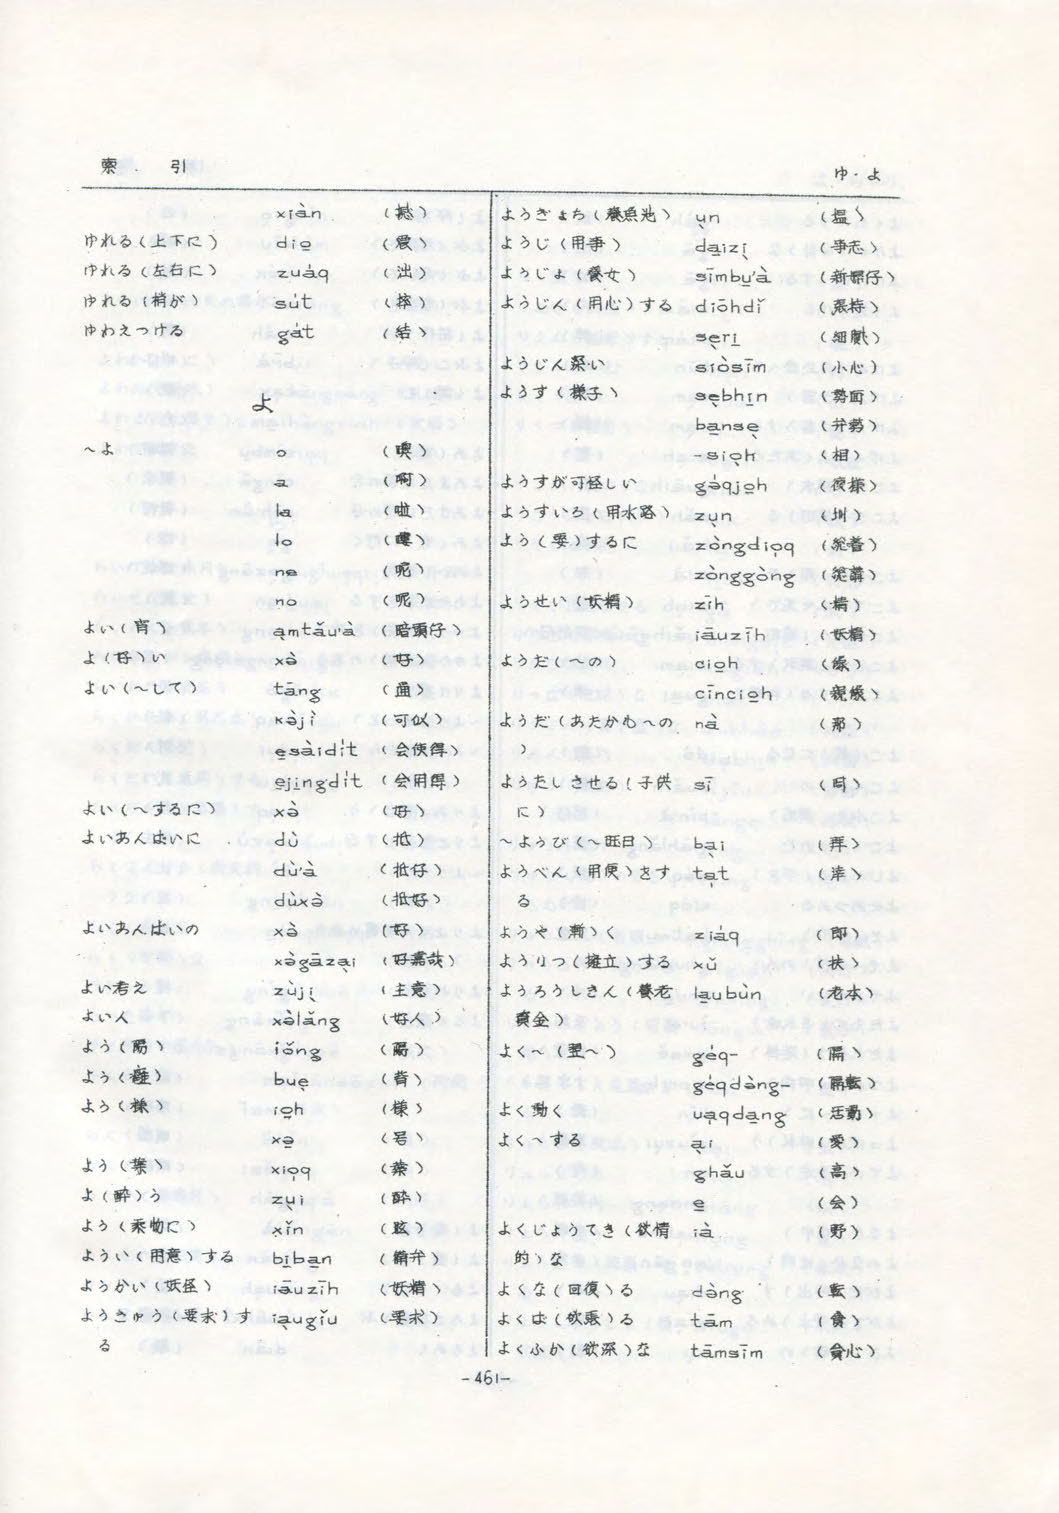 索 引
ゆ・よ
xiàn (掀)
ゆれる(上下に) dio̲ (震)
ゆれる(左右に) zuáq (泏)
ゆれる(梢が) su̍t (捽)
ゆわえつける ga̍t (結)
よ
～よ o (噢)
a (啊)
la (啦)
lo (嘍)
ne (呢)
no (呢)
よい(宵) ạmtǎu'à (暗頭仔)
よ(好)い xə̀ (好)
よい(～して) tāng (通)
kə̀jì (可似)
e̲sàidi̍t (会使得)
e̲ji̲ngdi̍t (会用得)
よい(～するに) xə̀ (好)
よいあんばいに dù (抵)
dù'à (抵仔)
dùxə̀ (抵好)
よいあんばいの xə̀ (好)
xə̀gāzại (好嘉哉)
よい考え zùjị (主意)
よい人 xə̀lǎng (好人)
よう(陽) iǒng (陽)
よう() buẹ (背)
よう(様) io̲h (様)
xə̲ (号)
よう(葉) xiọq (葉)
よ(酔)う zụi (酔)
よう(乗物に) xǐn (眩)
ようい(用意)する bi̲ba̲n (備弁)
ようかい(妖怪) iāuzīh (妖精)
ようきゅう(要求)す iạugǐu (要求)
る
ようぎょち(養魚池) ụn (塭)
ようじ(用事) da̲izị (事志)
ようじょ(養女) sīmbu̲'à (新婦仔)
ようじん(用心)する diōhdǐ (張持)
sẹri̲ (細膩)
ようじん深い siòsīm (小心)
ようす(様子) sẹbhi̲n (勢面)
ba̲nsẹ (弁勢)
-siọh (相)
ようすが可怪しい gə́qjọh ()
ようすいろ(用水路) zụn (圳)
よう(要)するに zòngdiọq (総着)
zònggòng (総講)
ようせい(妖精) zīh (精)
iāuzīh (妖精)
ようだ(～の) cio̲h (像)
cīncio̲h (親像)
ようだ(あたかも～の nà (那)
)
ようたしさせる(子供 sī ()
に)
～ようび(～旺日) bại (拝)
ようべん(用便)さす tạt ()
る
ようや(漸)く ziáq (即)
ようりつ(擁立)する xǔ (扶)
ようろうしきん(養老 la̲ubùn (老本)
資金)
よく～(翌～) géq- (隔)
géqdə̀ng- (隔転)
よく動く uạqda̲ng (活動)
よく～する ại (愛)
ghǎu (高)
e̲ (会)
よくじょうてき(欲情 ià (野)
的)な
よくな(回復)る də̀ng (転)
よくば(欲張)る tām (貪)
よくふか(欲深)な tāmsīm (貪心)
-461-